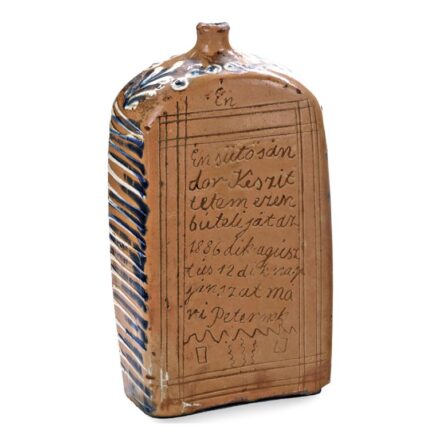 Én
Én sütö sán
dor Készit
tetem ezen
búteliját az
1836 dik agusz
tus 12 dik nap
ján szat ma
ri Peternek